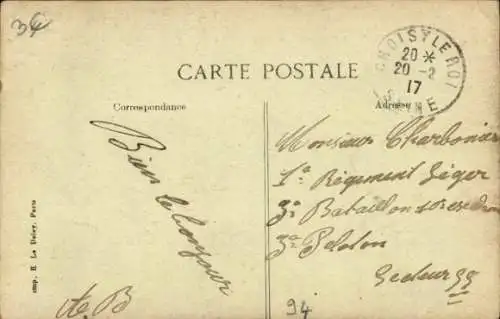 CHOISY LE ROI
20 *
20 -2
17
SEINE
CARTE POSTALE
Correspondance
Adresse
Bien le bonjour
Monsieur Charbonier
1e Régiment Léger
3e Bataillon
3e Peloton
Secteur 99
94
Imp. E. Le Deley, Paris